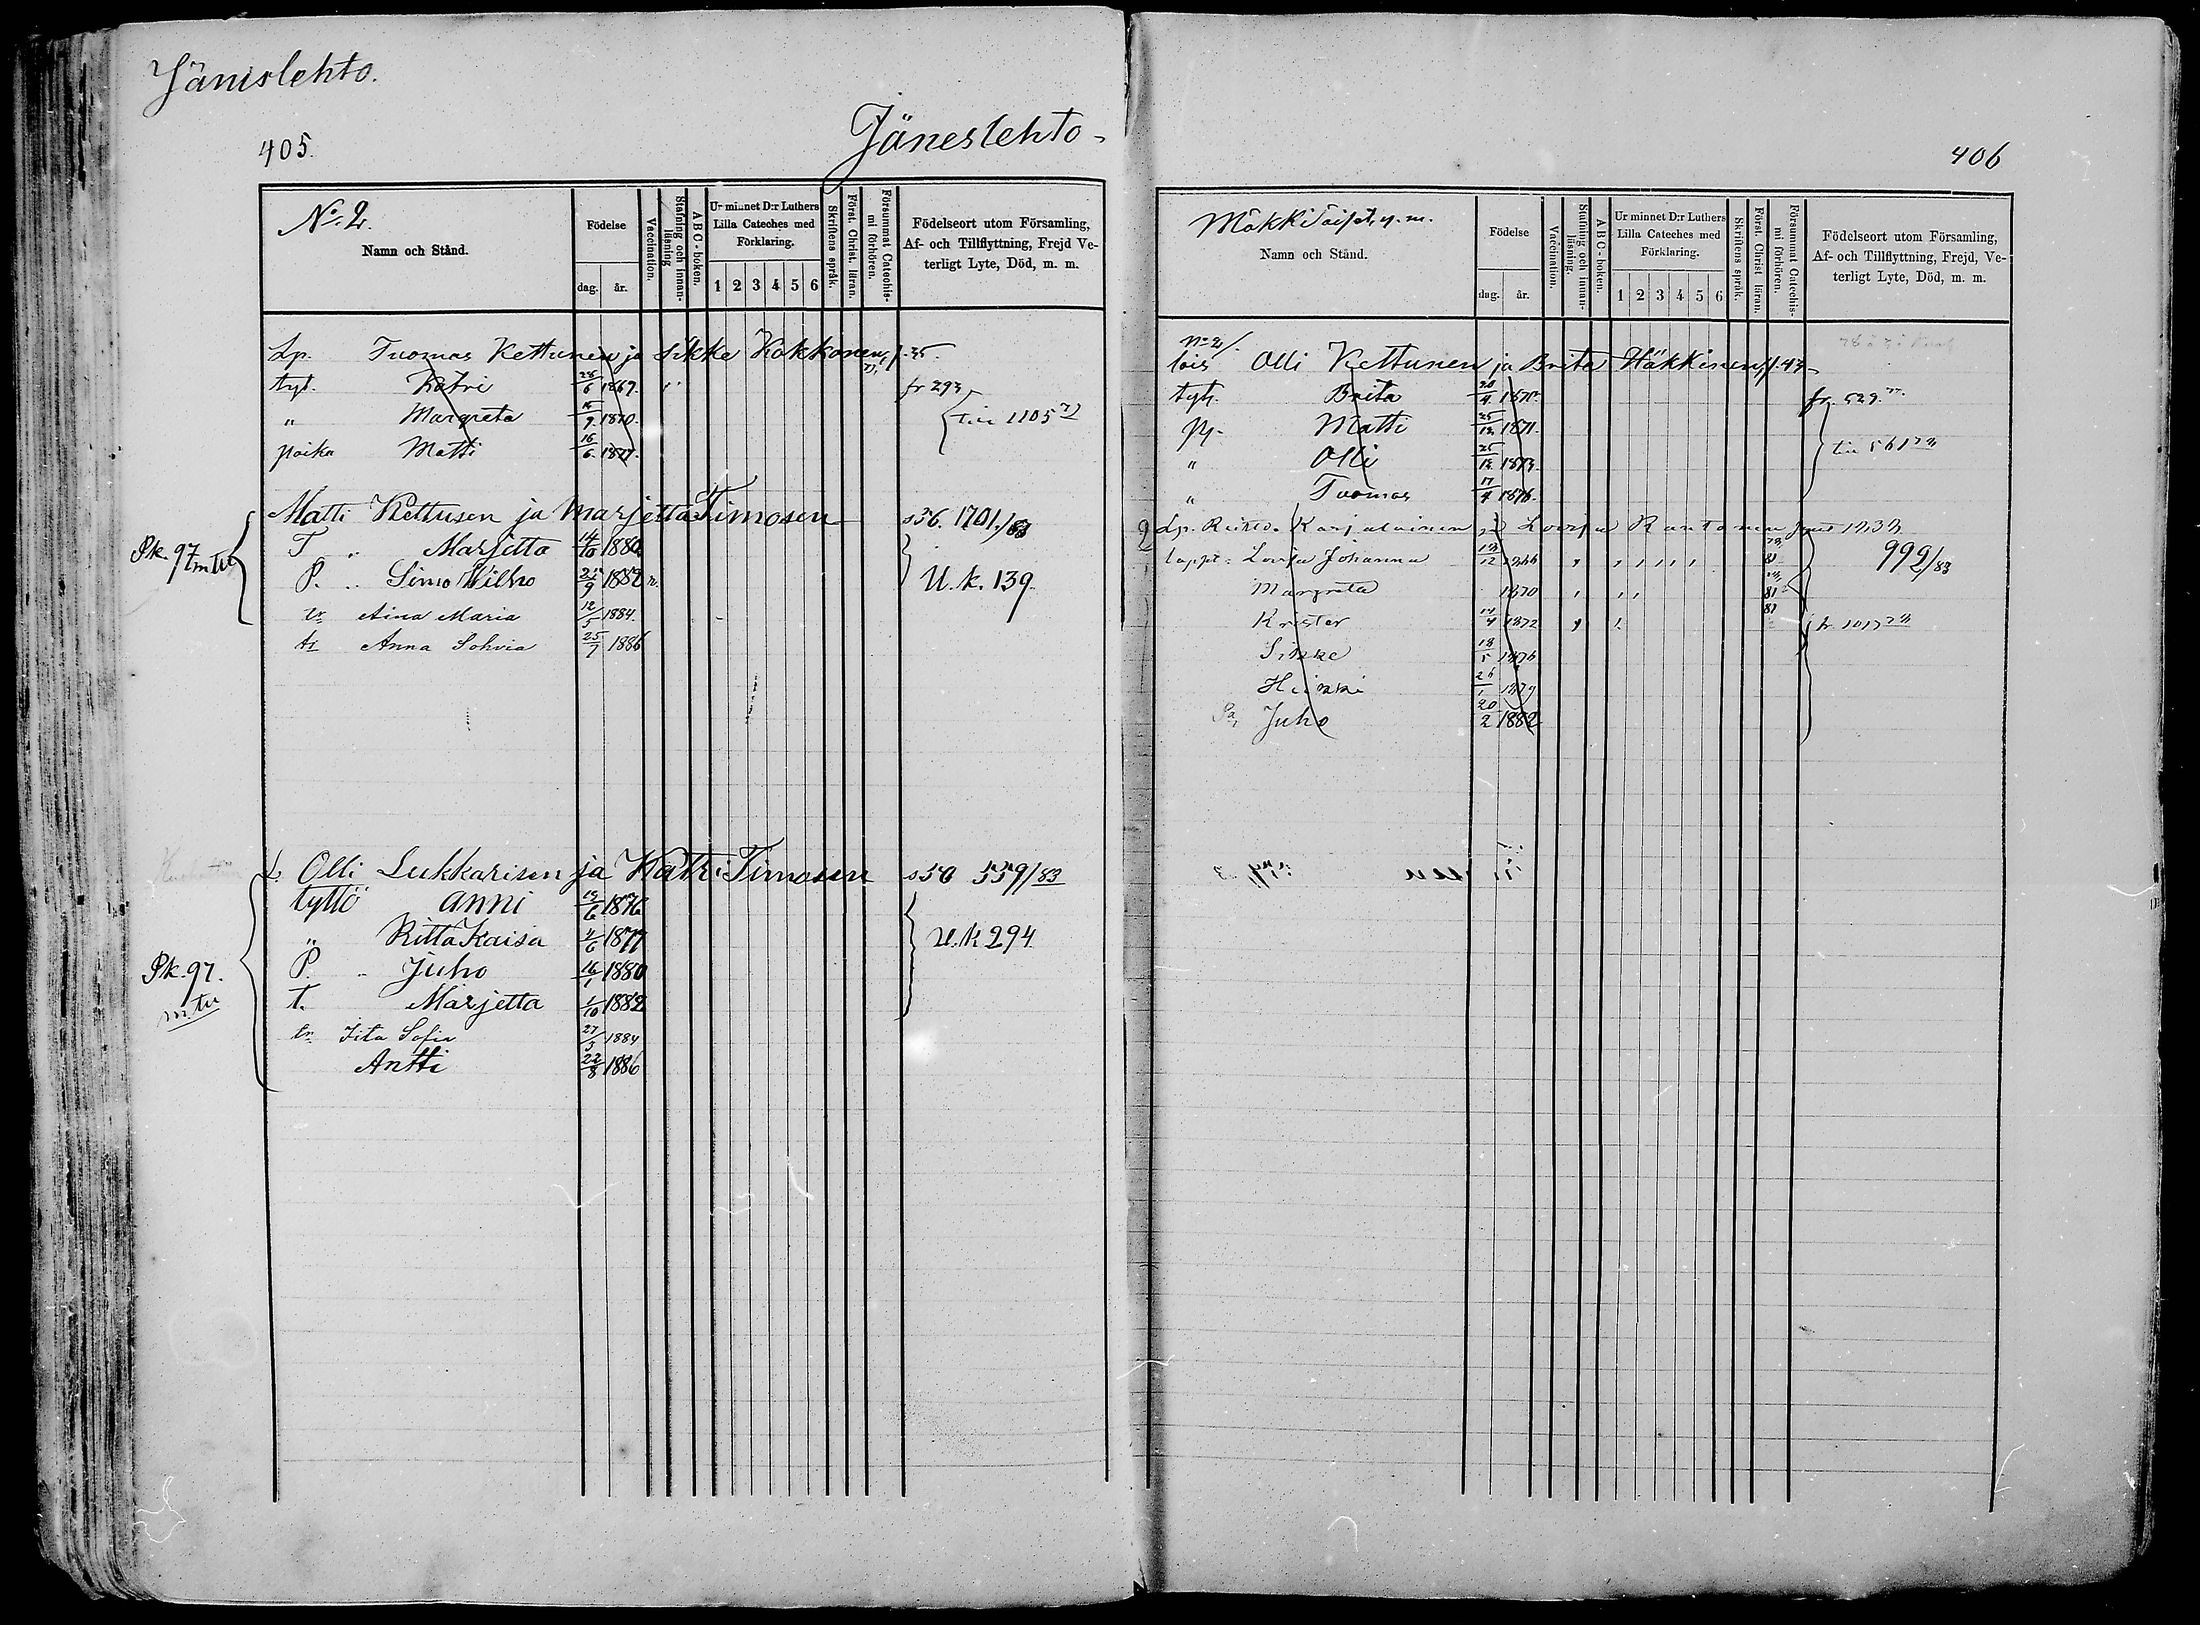 Jänislehto.
405.
Jäneslehto
No. 2.
Namn och Stånd.
Födelse
dag. år.
Vaccination.
Stafning och innan-läsning
ABC-boken.
Ur minnet D:r Luthers Lilla Cateches med Förklaring.
1 2 3 4 5 6
Skriftens språk.
Först. Christ. läran.
Försummat Catechis-mi förhören.
Födelseort utom Församling, Af- och Tillflyttning, Frejd Ve-terligt Lyte, Död, m. m.
Lp. Tuomas Kettunen ja Sikke Kokkonen, p. 35.
tyt. Katri 28/6 1867. fr 293
" Margreta 1870. 1105
poika Matti 16/6 1877.
Matti Kettusen ja Marjetta Timosen s36. 1701/83
Pk. 97 m tu
T " Marjetta 14/10 1880
P. " Simo Wilho 21/9 1882 U. k. 139.
tr Aina Maria 12/5 1884.
tr Anna Sohvia 25/7 1886
L. Olli Lukkarisen ja Katri Timosen s50 559/83
tyttö Anni 13/6 1876
" Riitta Kaisa 4/6 1877 U. k 294
P. " Juho 16/1 1880
Pk. 97. m. tu
T. Marjetta 1/10 1882
tr. Iita Sofia 27/3 1884
Antti 22/8 1886
406
Mäkkitäiset, y. m.
Namn och Stånd.
Födelse
dag. år.
Vaccination.
Stafning och innan-läsning.
ABC-boken.
Ur minnet D:r Luthers Lilla Cateches med Förklaring.
1 2 3 4 5 6
Skriftens språk.
Först. Christ läran.
Försummat Catechis-mi förhören.
Födelseort utom Församling, Af- och Tillflyttning, Frejd, Ve-terligt Lyte, Död, m. m.
No 2/.
lois Olli Kettunen ja Brita Häkkinen, p. 47
tyt. Brita 1870. fr. 529.
pj. Matti 25/12 1871.
" Olli 25/12 1873. 561
" Tuomas 17/4 1876.
Lp. Karjalainen ja Lovisa Rautonen
Lovisa Johanna 12 1866 81 992/83
Margreta 1870 81
Krister 14/4 1872 81 1017
Sikke 18/5 1876
Heikki 26/1 1879
Juho 20/2 1882